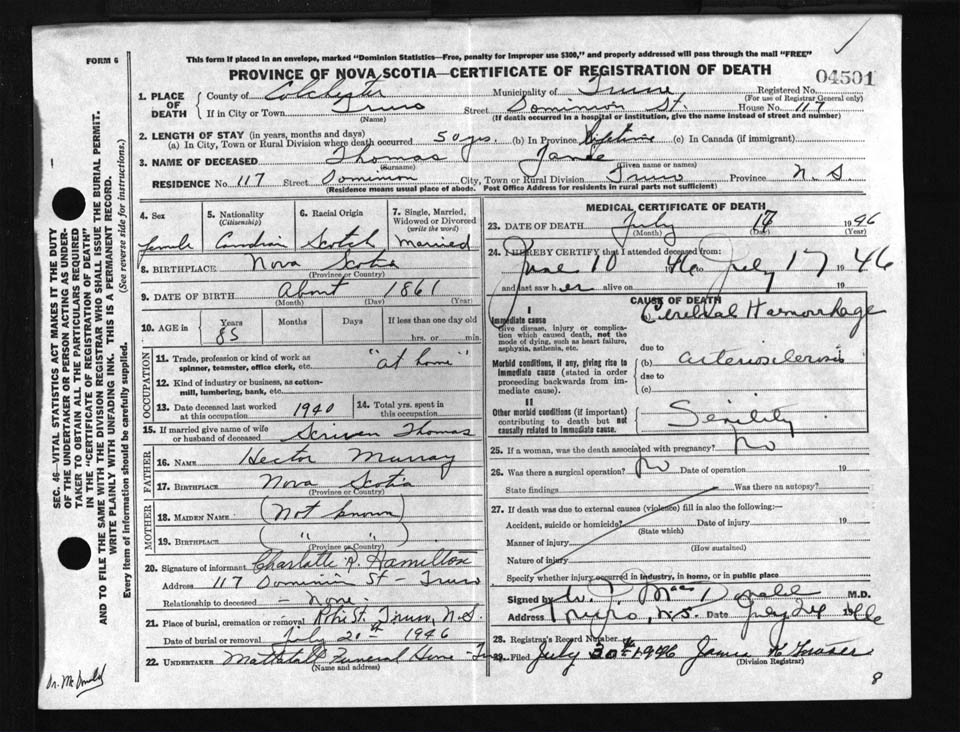 FORM 6
This form if placed in an envelope, marked "Dominion Statistics—Free, penalty for improper use $300," and properly addressed will pass through the mail "FREE"
PROVINCE OF NOVA SCOTIA—CERTIFICATE OF REGISTRATION OF DEATH
04501
1. PLACE OF DEATH
County of Colchester Municipality of Truro Registered No.
(For use of Registrar General only)
If in City or Town Truro Street Dominion St. House No. 117
(Name) (If death occurred in a hospital or institution, give the name instead of street and number)
2. LENGTH OF STAY (in years, months and days)
(a) In City, Town or Rural Division where death occurred 50 yrs. (b) In Province Lifetime (c) In Canada (if immigrant)
3. NAME OF DECEASED Thomas
(Surname) (Given name or names)
RESIDENCE No. 117 Street Dominion City, Town or Rural Division Truro Province N.S
(Residence means usual place of abode. Post Office Address for residents in rural parts not sufficient)
4. Sex 5. Nationality (Citizenship) 6. Racial Origin 7. Single, Married, Widowed or Divorced (write the word)
female Canadian Scotch Married
8. BIRTHPLACE Nova Scotia
(Province or Country)
9. DATE OF BIRTH About 1861
(Month) (Day) (Year)
10. AGE in Years Months Days If less than one day old
85 hrs. or min.
OCCUPATION
11. Trade, profession or kind of work as spinner, teamster, office clerk, etc. "at home"
12. Kind of industry or business, as cotton-mill, lumbering, bank, etc.
13. Date deceased last worked at this occupation 1940 14. Total yrs. spent in this occupation
15. If married give name of wife or husband of deceased Scriven Thomas
FATHER
16. NAME Hector Murray
17. BIRTHPLACE Nova Scotia
(Province or Country)
MOTHER
18. MAIDEN NAME (Not known)
19. BIRTHPLACE ( " " )
(Province or Country)
20. Signature of informant Charlotte R. Hamilton
Address 117 Dominion St - Truro
Relationship to deceased - None -
21. Place of burial, cremation or removal Robie St. Truro, N.S.
Date of burial or removal July 20th 1946
22. UNDERTAKER Mattatall Funeral Home -
(Name and address)
MEDICAL CERTIFICATE OF DEATH
23. DATE OF DEATH July 18 1946
(Month) (Day) (Year)
24. I HEREBY CERTIFY that I attended deceased from:
June 10 46 to July 17 1946
and last saw her alive on 19
CAUSE OF DEATH
I
Immediate cause (a) Cerebral Hemorrhage
Give disease, injury or complication which caused death, not the mode of dying, such as heart failure, asphyxia, asthenia, etc.
due to
Morbid conditions, if any, giving rise to immediate cause (stated in order proceeding backwards from immediate cause). (b) arteriosclerosis
due to
(c)
II
Other morbid conditions (if important) contributing to death but not causally related to immediate cause. Senility
25. If a woman, was the death associated with pregnancy? No
26. Was there a surgical operation? No Date of operation 19
State findings Was there an autopsy?
27. If death was due to external causes (violence) fill in also the following:—
Accident, suicide or homicide? Date of injury 19
(State which)
Manner of injury
(How sustained)
Nature of injury
Specify whether injury occurred in industry, in home, or in public place
Signed by MacDonald M.D.
Address Truro, N.S. Date July 24 1946
28. Registrar's Record Number
29. Filed July 30th 1946 James
(Division Registrar)
8
SEC. 46—VITAL STATISTICS ACT MAKES IT THE DUTY
OF THE UNDERTAKER OR PERSON ACTING AS UNDER-
TAKER TO OBTAIN ALL THE PARTICULARS REQUIRED
IN THE "CERTIFICATE OF REGISTRATION OF DEATH"
AND TO FILE THE SAME WITH THE DIVISION REGISTRAR WHO SHALL ISSUE THE BURIAL PERMIT.
WRITE PLAINLY WITH UNFADING INK. THIS IS A PERMANENT RECORD.
Every item of information should be carefully supplied. (See reverse side for instructions.)
Dr. McDonald